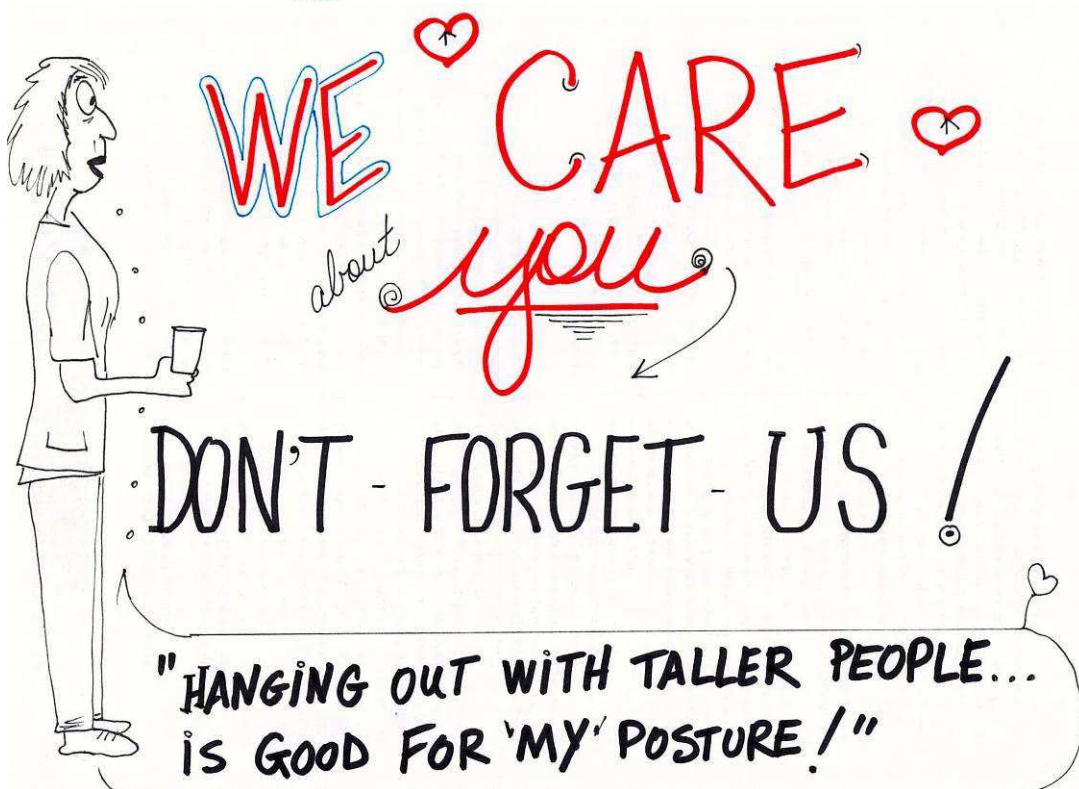 WE CARE
about you
DON'T - FORGET - US !
"HANGING OUT WITH TALLER PEOPLE...
IS GOOD FOR 'MY' POSTURE!"